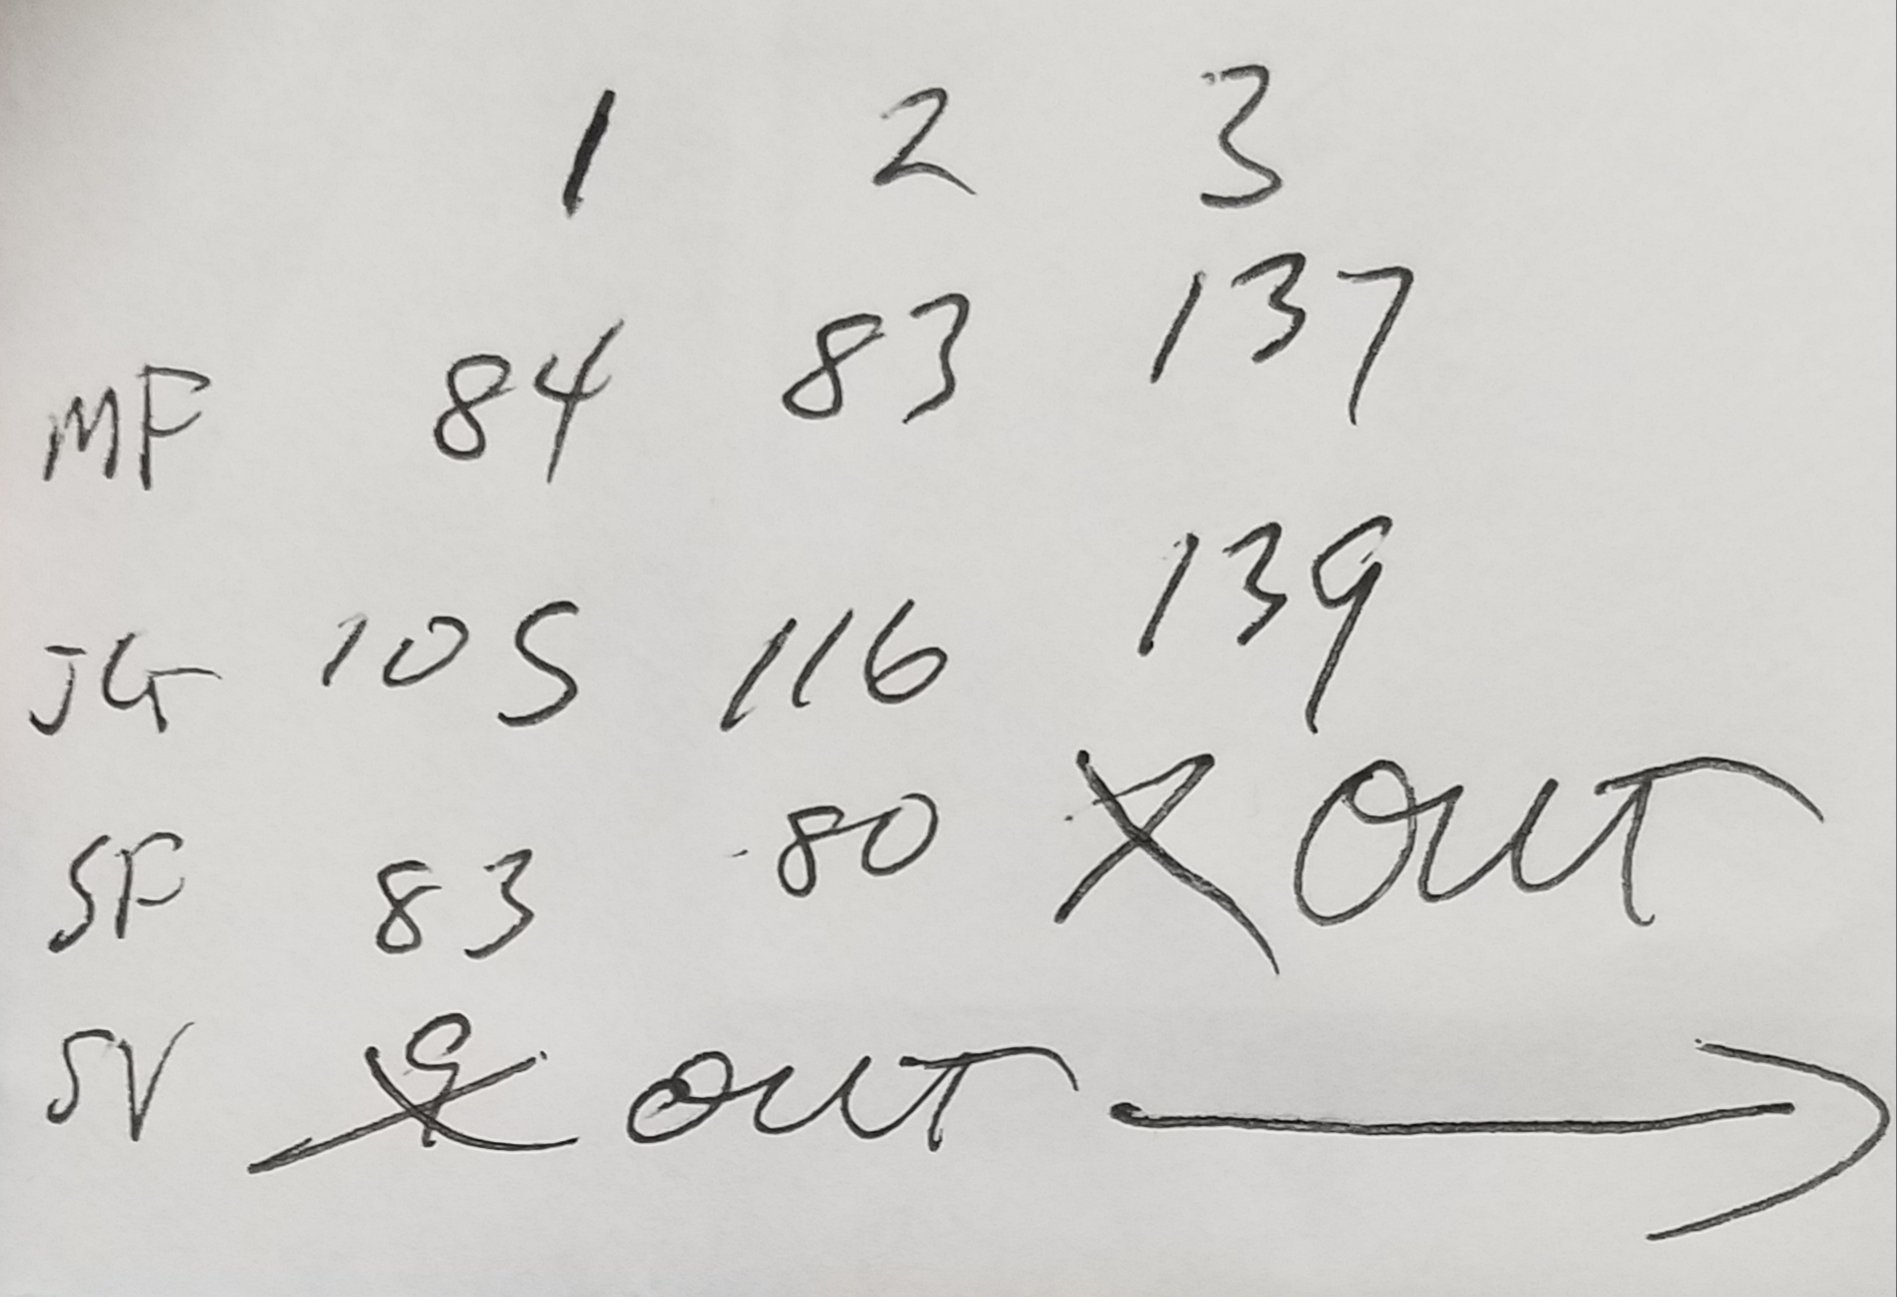 1 2 3
MF 84 83 137
JG 105 116 139
SF 83 80 X OUT
SV 9 OUT